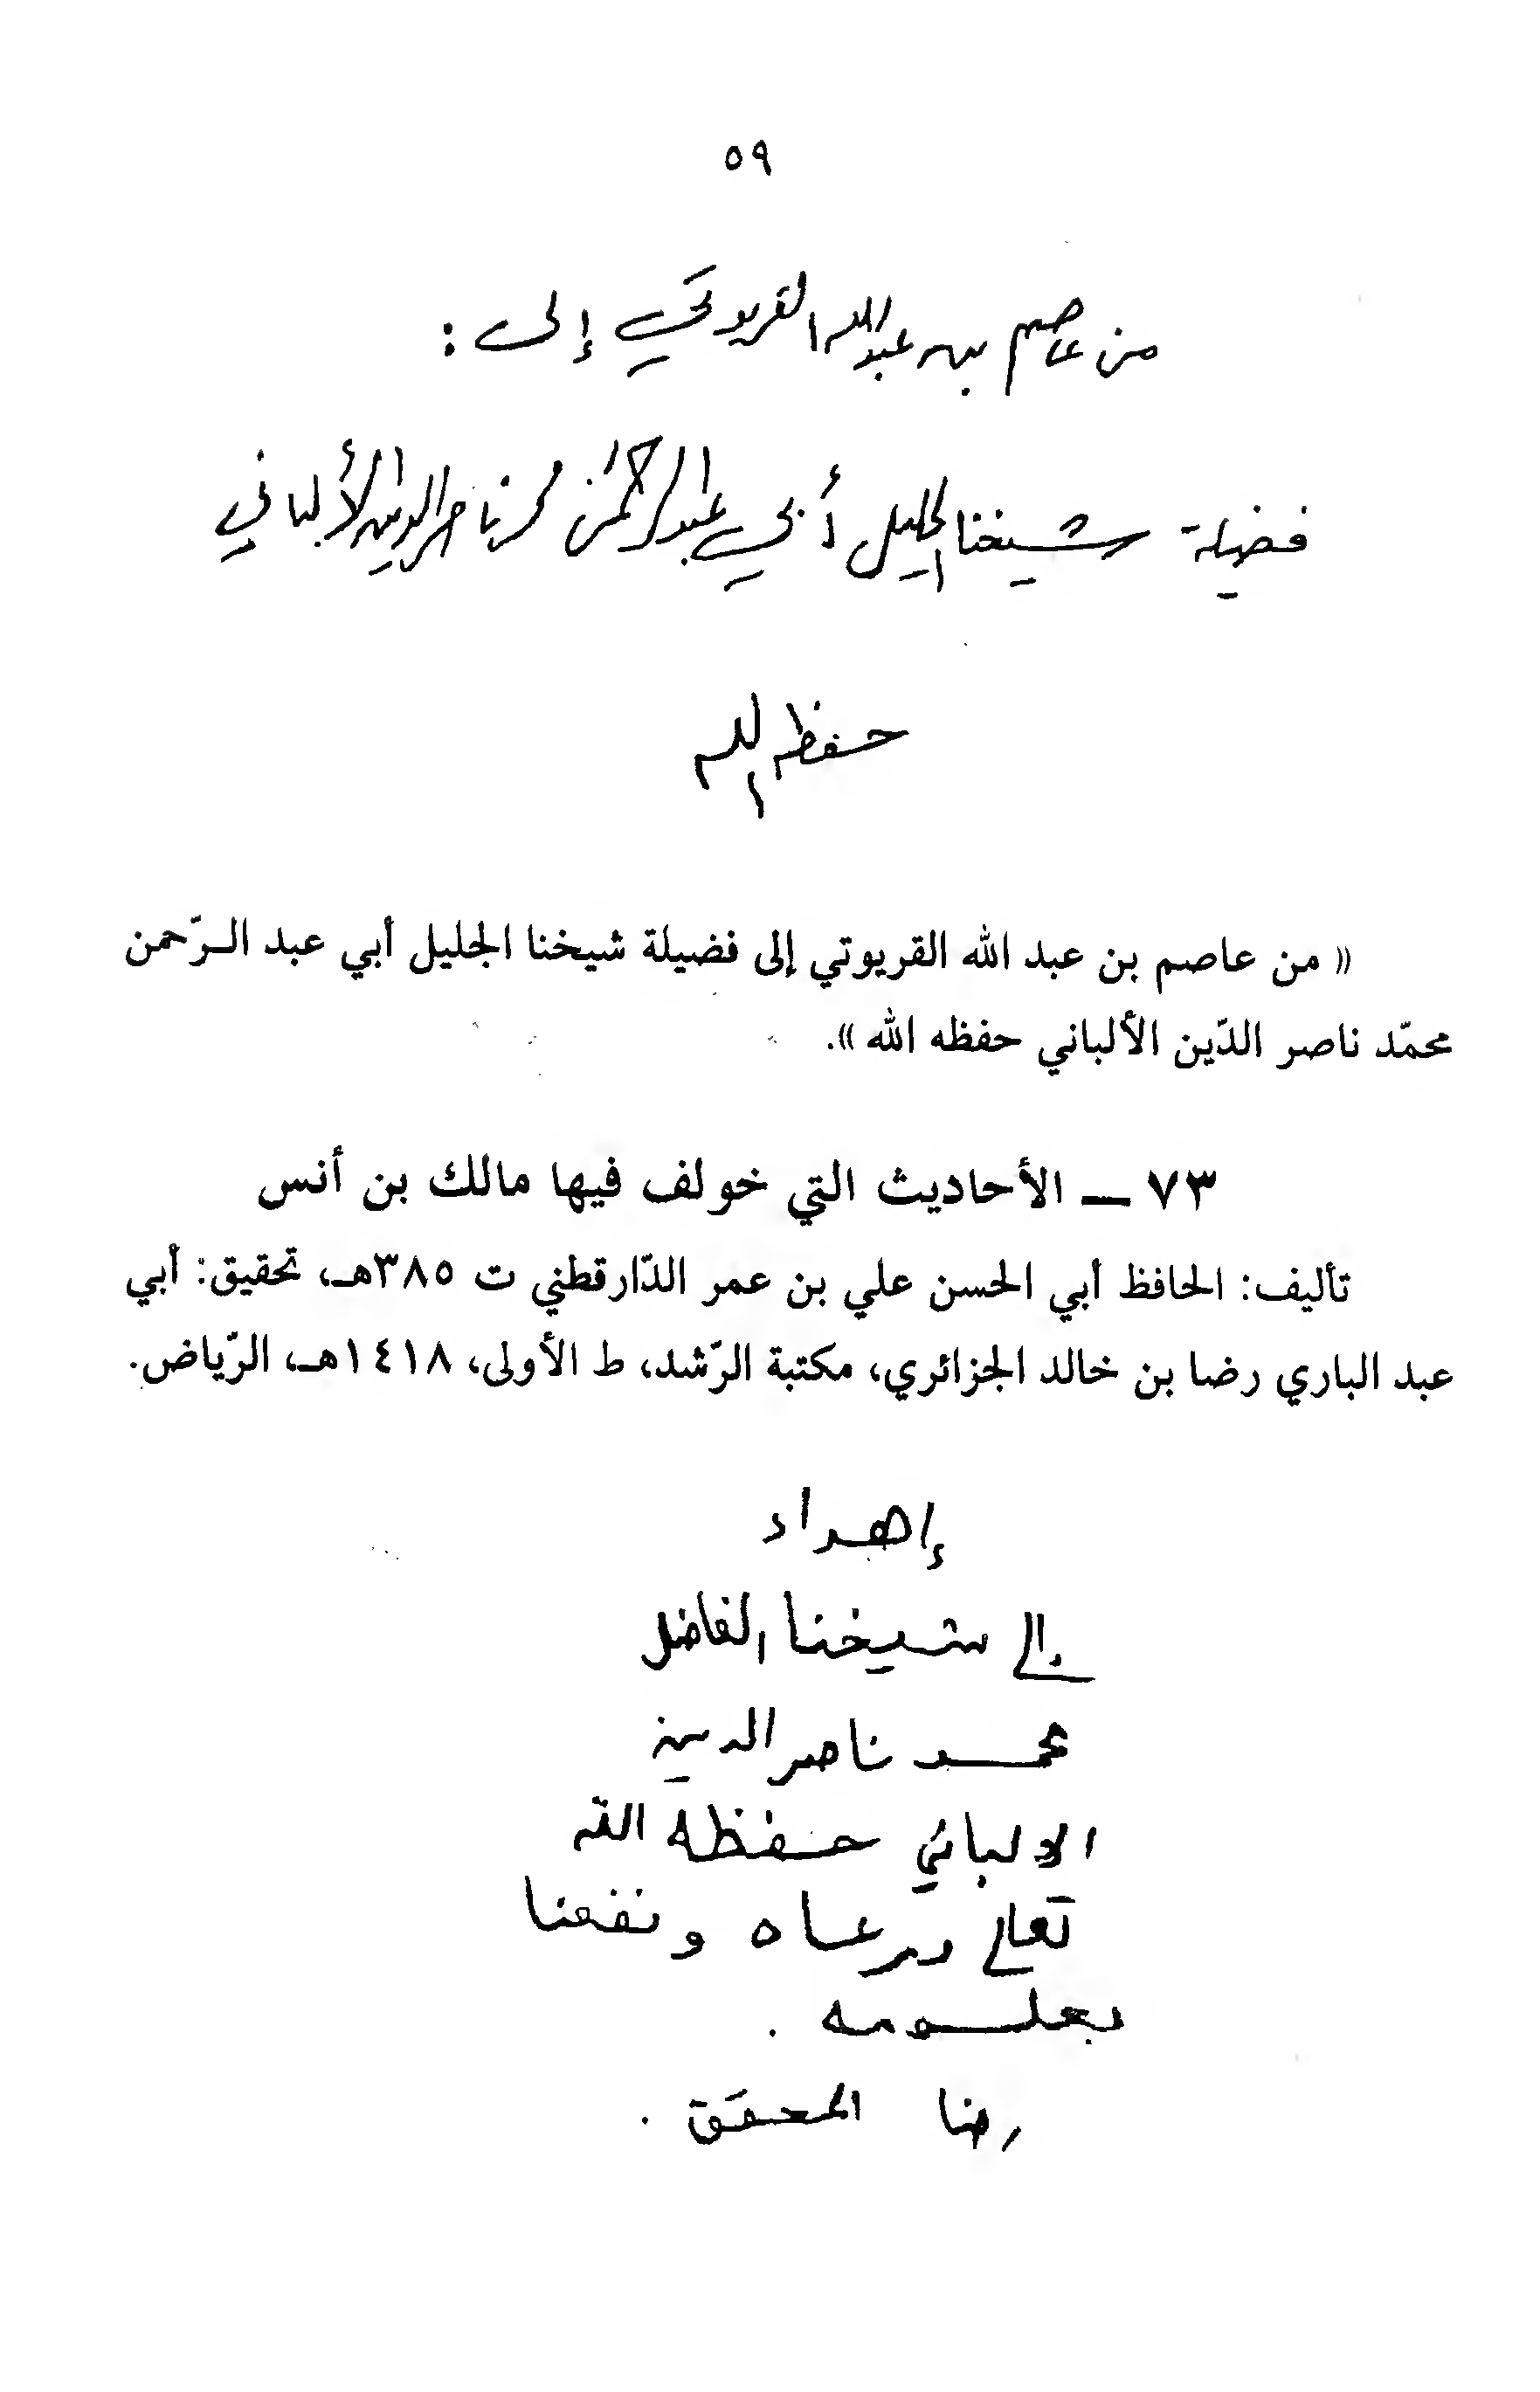 ٥٩
من عاصم بن عبد الله القريوتي إلى :
فضيلة شيخنا الجليل أبي عبد الرحمن محمد ناصر الدين الألباني
حفظه الله
(( من عاصم بن عبد الله القريوتي إلى فضيلة شيخنا الجليل أبي عبد الـرّحمن
محمّد ناصر الدّين الألباني حفظه الله )).
٧٣ ــ الأحاديث التي خولف فيها مالك بن أنس
تأليف: الحافظ أبي الحسن علي بن عمر الدّارقطني ت ٣٨٥هـ، تحقيق: أبي
عبد الباري رضا بن خالد الجزائري، مكتبة الرّشد، ط الأولى، ١٤١٨هـ، الرّياض.
إهداء
إلى شيخنا الفاضل
محمد ناصر الدين
الألباني حفظه الله
تعالى ورعاه ونفعنا
بعلومه .
رضا المحقق .